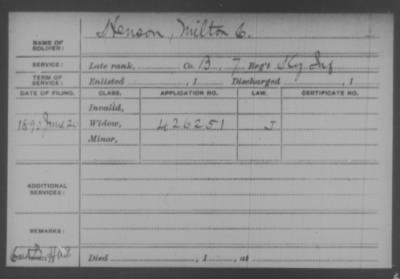 NAME OF SOLDIER: Henson, Milton C.
SERVICE: Late rank, Co. B, 7 Reg't Ky Inf
TERM OF SERVICE: Enlisted , 1 Discharged , 1
DATE OF FILING. CLASS. APPLICATION NO. LAW. CERTIFICATE NO.
Invalid,
1890 June 20 Widow, 426251 J
Minor,
ADDITIONAL SERVICES:
REMARKS:
Died , 1 , at